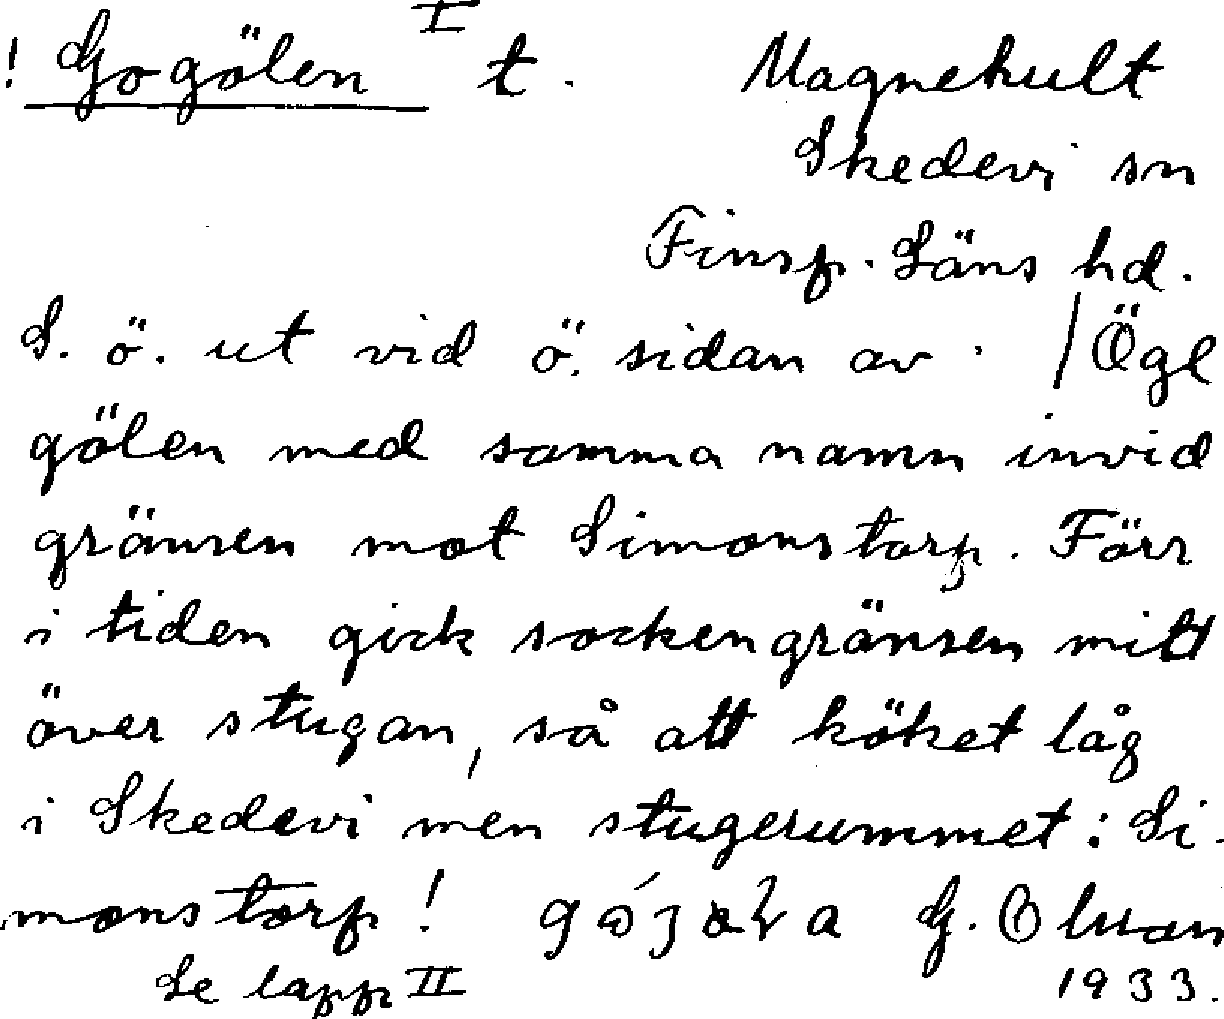 ! Gogölen I t. Magnehult
Skedevi sn
Finsp. Läns hd.
S. ö. ut vid ö. sidan av / Ögl
gölen med samma namn invid
gränsen mot Simonstorp. Förr
i tiden gick sockengränsen mitt
över stugan, så att köket låg
i Skedevi men stugerummet i Si-
monstorp! G. Olsson
Se lapp II 1933.